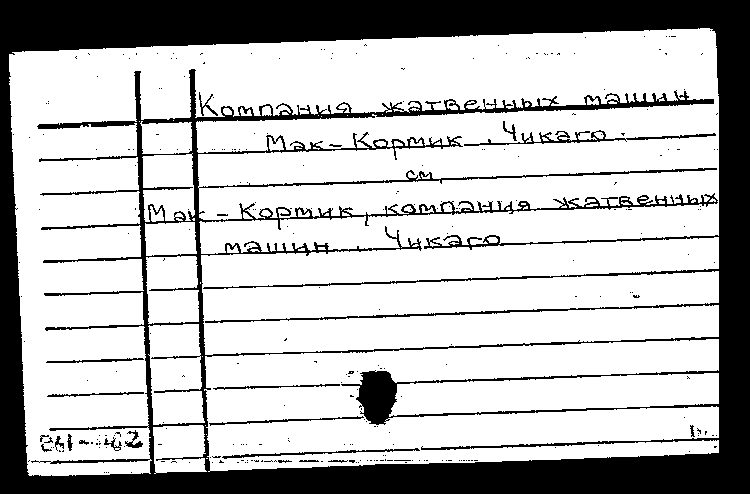 Компания жатвенных машин
Мак-Кормик. Чикаго.
см.
Мак-Кормик, компания жатвенных
машин. Чикаго